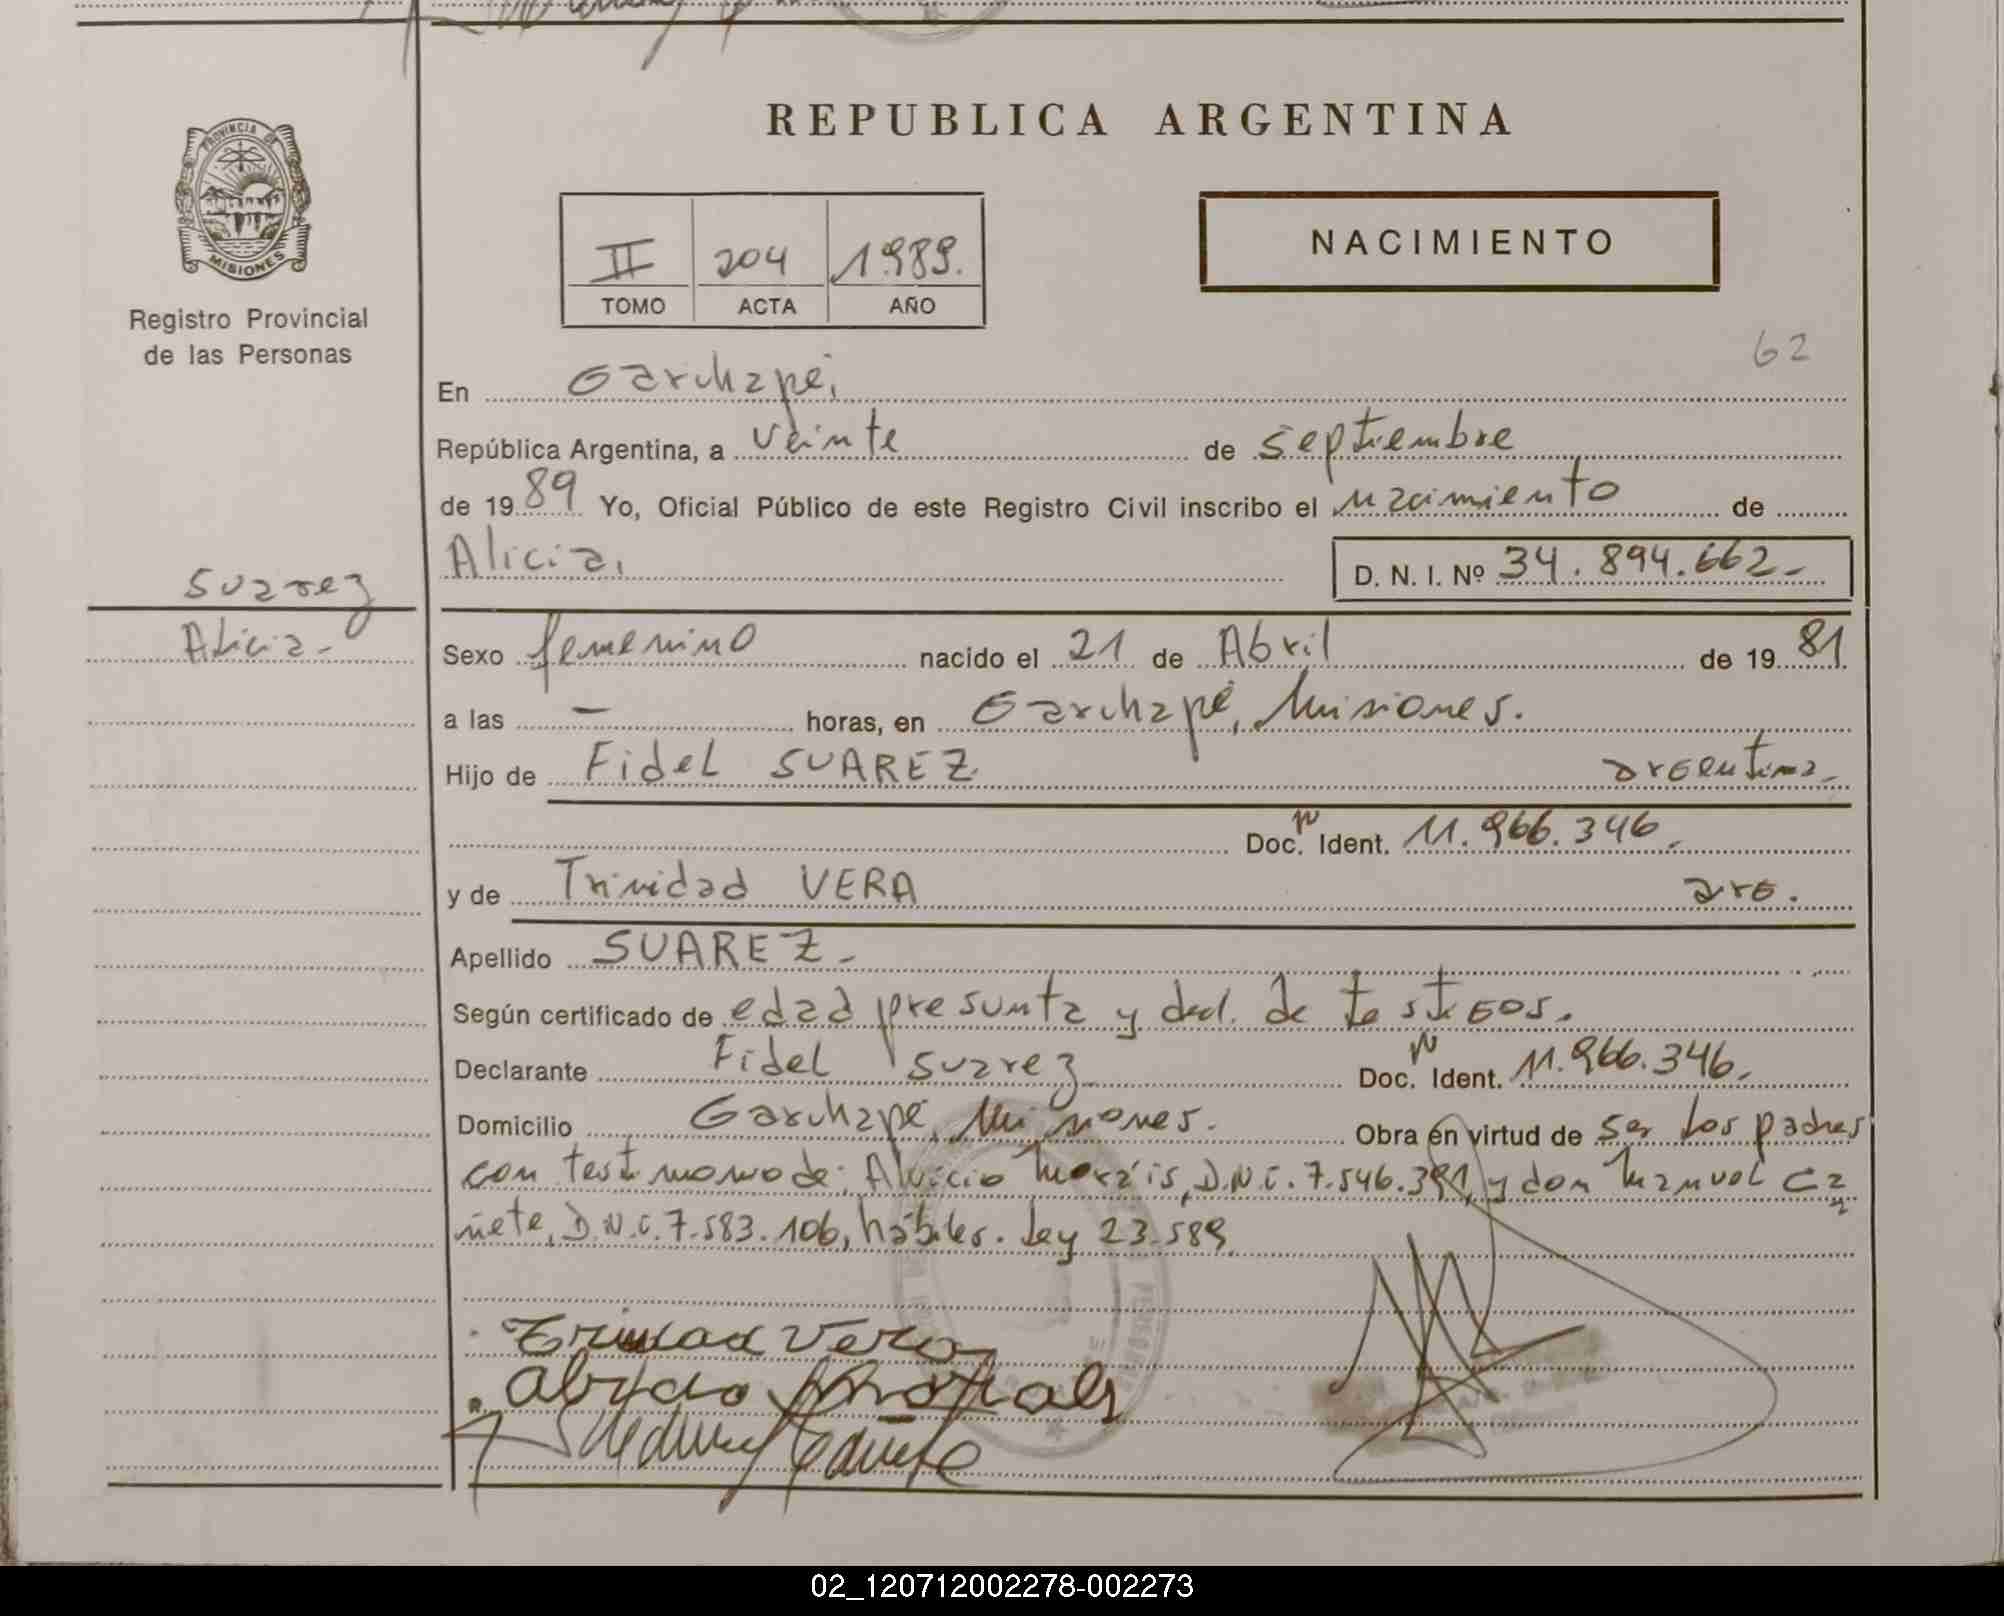 REPUBLICA ARGENTINA
PROVINCIA DE
MISIONES
Registro Provincial
de las Personas
II 204 1.989.
TOMO ACTA AÑO
NACIMIENTO
62
En Garuhapé,
República Argentina, a veinte de septiembre
de 19 89 Yo, Oficial Público de este Registro Civil inscribo el nacimiento de
Alicia,
D. N. I. Nº 34.894.662-
Suarez
Alicia-
Sexo femenino nacido el 21 de Abril de 19 81
a las — horas, en Garuhapé, Misiones.
Hijo de Fidel SUAREZ argentina-
Doc. Ident. 11.966.346.
y de Trinidad VERA arg.
Apellido SUAREZ-
Según certificado de edad presunta y decl. de testigos.
Declarante Fidel Suarez Doc. Ident. 11.966.346.
Domicilio Garuhapé, Misiones. Obra en virtud de ser los padres
con testimonio de: Moráis, D.N.I. 7.546.391, y don Manuel Ca
ñete, D.N.I. 7.583.106, hábiles. Ley 23.589.
Trinidad Vera
02_120712002278-002273